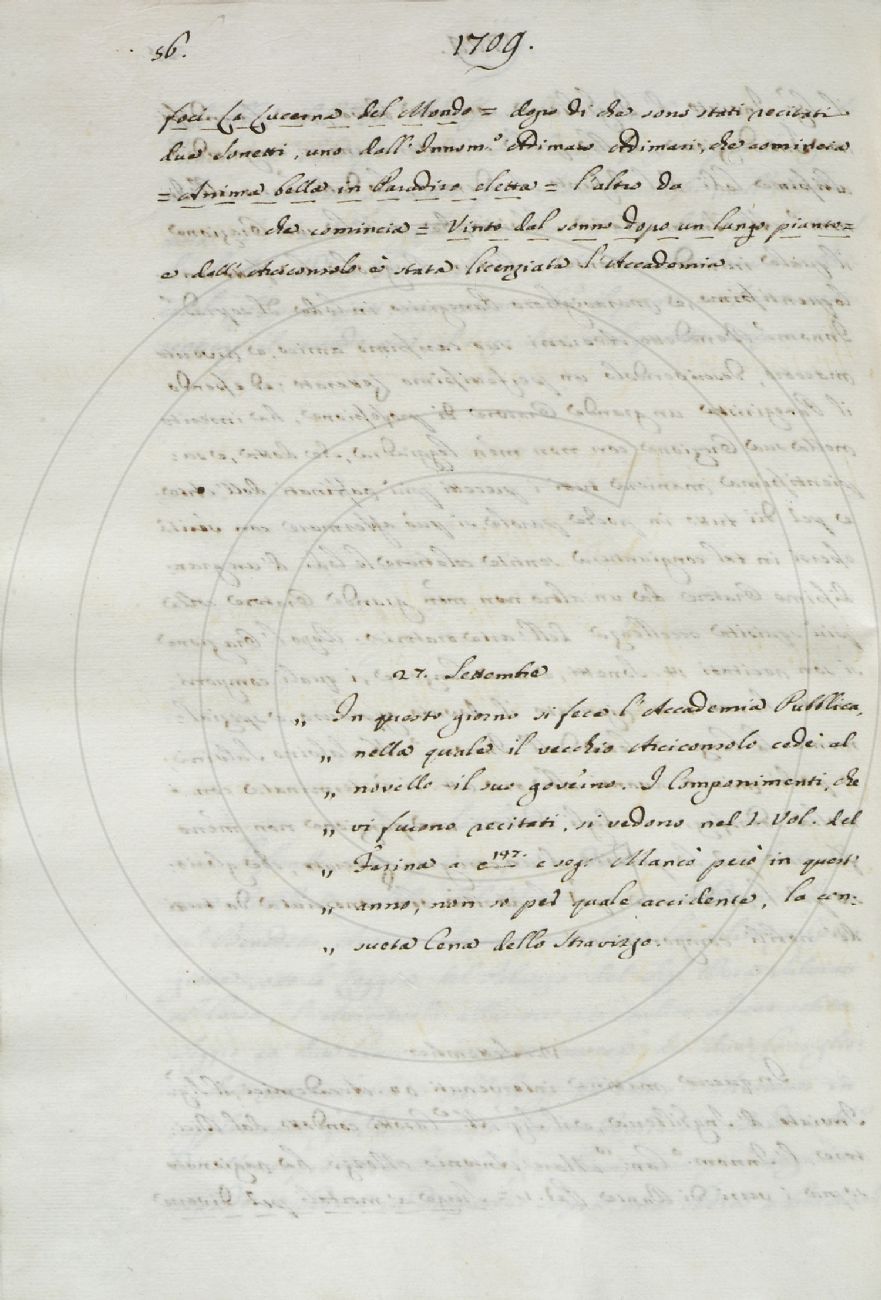 56.
1709.
foci La Lucerna del Mondo = dopo di che sono stati recitati
due Sonetti, uno dall' Innom.º Adimaro Adimari, che comincia
= Anima bella in Paradiso eletta = l'altro da
che comincia = Vinto dal sonno dopo un lungo pianto =
e dall' Arciconsolo è stata licenziata l'Accademia
27. Settembre
„ In questo giorno si fece l'Accademia Pubblica,
„ nella quale il vecchio Arciconsolo cedè al
„ novello il suo governo. I Componimenti, che
„ vi furono recitati, si vedono nel 1. Vol. del
„ Farina a c 147. e seg. Mancò però in quest'
„ anno, non so per quale accidente, la con:
„ sueta Cena dello Stravizzo.